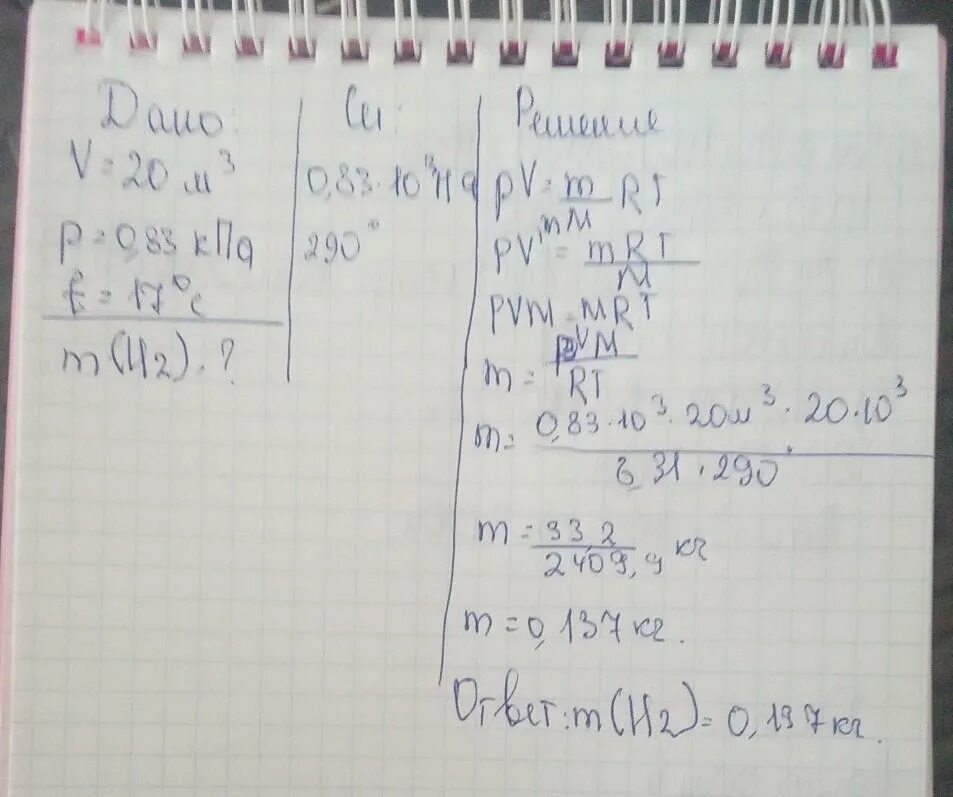 Дано:
V = 20 м³
p = 0,83 кПа
t = 17°c
m(H2) - ?
Си:
0,83·10³Па
290°
Решение
pV = m/M RT
PV = mRT/M
PVM = MRT
m = pVM/RT
m = 0,83·10³·20м³·20·10³ / 8,31·290
m = 33,2/2409,9 кг
m = 0,137 кг.
Ответ: m(H2) = 0,137 кг.